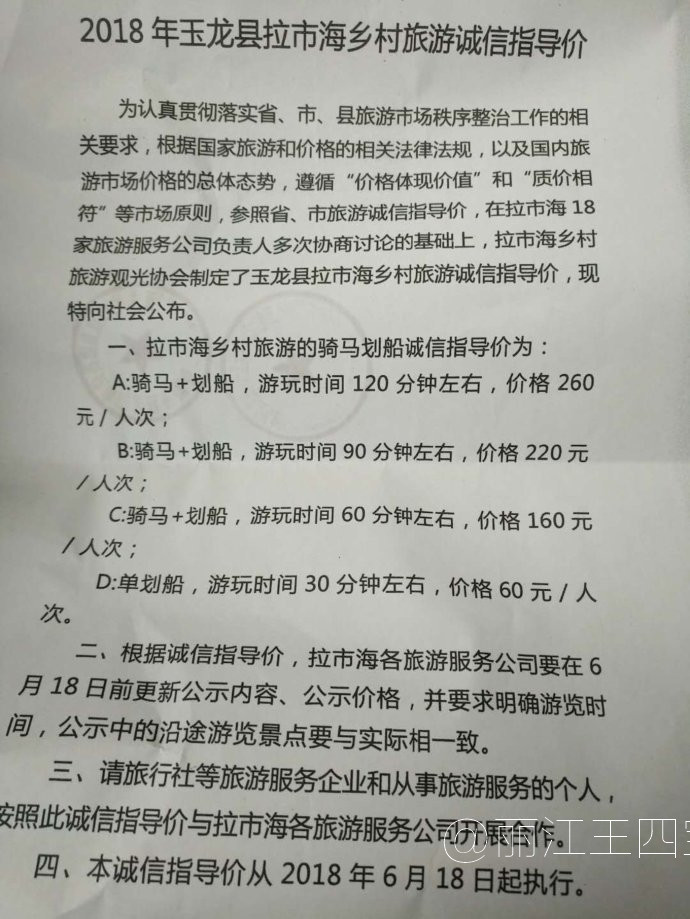 2018 年玉龙县拉市海乡村旅游诚信指导价
为认真贯彻落实省、市、县旅游市场秩序整治工作的相
关要求，根据国家旅游和价格的相关法律法规，以及国内旅
游市场价格的总体态势，遵循“价格体现价值”和“质价相
符”等市场原则，参照省、市旅游诚信指导价，在拉市海 18
家旅游服务公司负责人多次协商讨论的基础上，拉市海乡村
旅游观光协会制定了玉龙县拉市海乡村旅游诚信指导价，现
特向社会公布。
一、拉市海乡村旅游的骑马划船诚信指导价为：
A:骑马+划船，游玩时间 120 分钟左右，价格 260
元 / 人次；
B:骑马+划船，游玩时间 90 分钟左右，价格 220 元
/ 人次；
C:骑马+划船，游玩时间 60 分钟左右，价格 160 元
/ 人次；
D:单划船，游玩时间 30 分钟左右，价格 60 元 / 人
次。
二、根据诚信指导价，拉市海各旅游服务公司要在 6
月 18 日前更新公示内容、公示价格，并要求明确游览时
间，公示中的沿途游览景点要与实际相一致。
三、请旅行社等旅游服务企业和从事旅游服务的个人，
按照此诚信指导价与拉市海各旅游服务公司开展合作。
四、本诚信指导价从 2018 年 6 月 18 日起执行。
@丽江王四宝